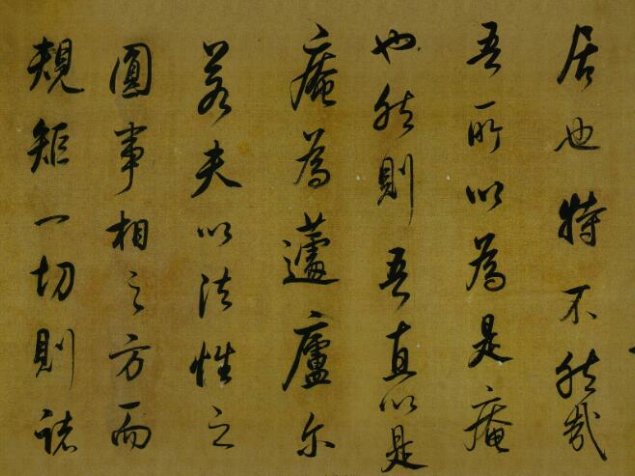 居也特不然哉
吾所以為是庵
也然則吾直以是
庵為蘧廬尔
若夫以法性之
圓事相之方而
規矩一切則諸